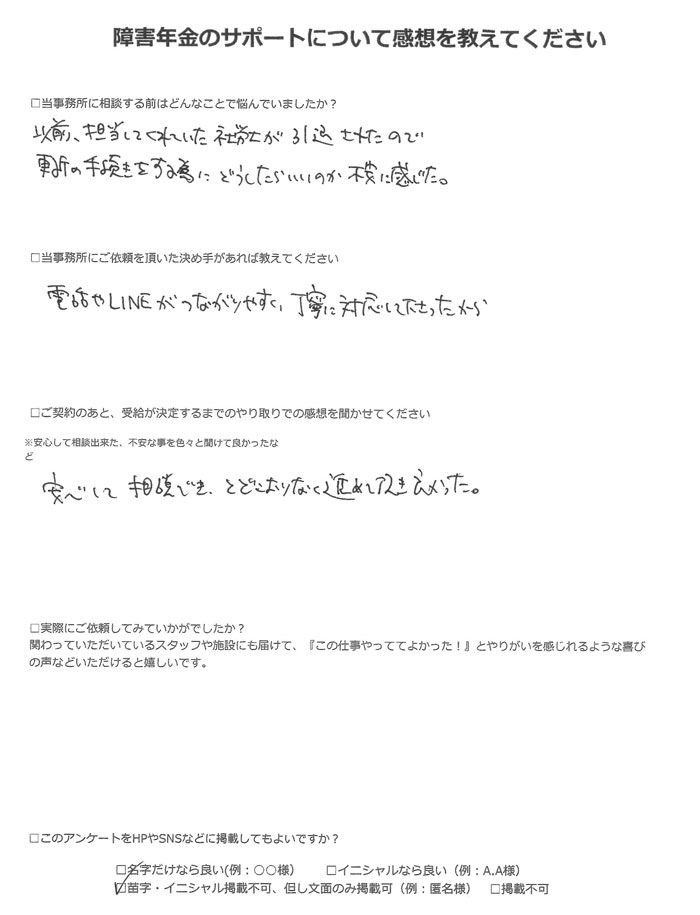 障害年金のサポートについて感想を教えてください
□当事務所に相談する前はどんなことで悩んでいましたか？
以前、担当してくれていた社労士が引退されたので
更新の手続きをする為にどうしたらいいのか不安に感じた。
□当事務所にご依頼を頂いた決め手があれば教えてください
電話やLINEがつながりやすく、丁寧に対応して下さったから
□ご契約のあと、受給が決定するまでのやり取りでの感想を聞かせてください
※安心して相談出来た、不安な事を色々と聞けて良かったな
ど
安心して相談でき、とどこおりなく進めて頂き良かった。
□実際にご依頼してみていかがでしたか？
関わっていただいているスタッフや施設にも届けて、『この仕事やっててよかった！』とやりがいを感じれるような喜び
の声などいただけると嬉しいです。
□このアンケートをHPやSNSなどに掲載してもよいですか？
□名字だけなら良い(例：○○様)　□イニシャルなら良い（例：A.A様）
☑苗字・イニシャル掲載不可、但し文面のみ掲載可（例：匿名様）　□掲載不可